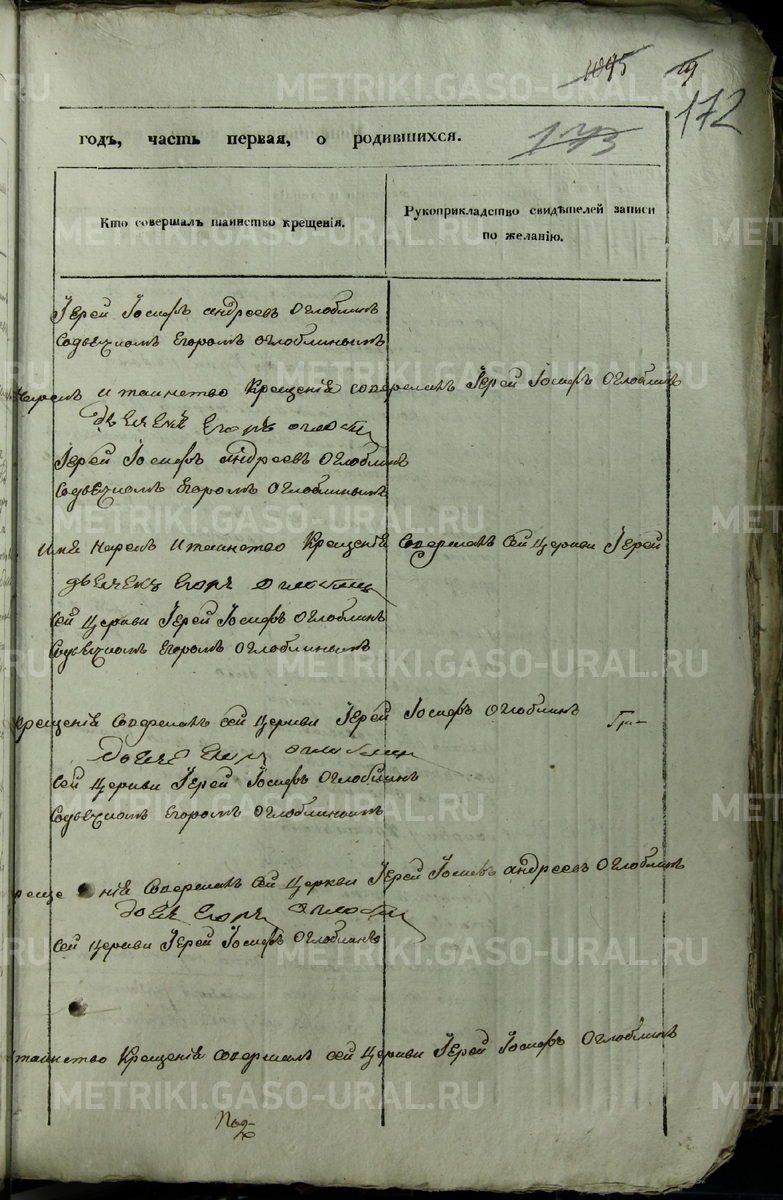 1095 19
172
173
годъ, часть первая, о родившихся.
Кто совершалъ таинство крещенія.
Рукоприкладство свидѣтелей записи по желанію.
Іерей Іосифъ андреевъ Оглоблинъ
Содьячкомъ Егоромъ Оглоблинымъ
Нарекъ и таинство Крещенія совершалъ Іерей Іосифъ Оглоблинъ
Егоръ
Іерей Іосифъ андреевъ Оглоблинъ
Содьячкомъ Егоромъ Оглоблинымъ
Имя Нарекъ и таинство Крещенія Совершалъ Сей Церкви Іерей
Егоръ
Сей Церкви Іерей Іосифъ Оглоблинъ
Содьячкомъ Егоромъ Оглоблинымъ
Крещенія Совершалъ Сей Церкви Іерей Іосифъ Оглоблинъ
Сей Церкви Іерей Іосифъ Оглоблинъ
Содьячкомъ Егоромъ Оглоблинымъ
Совершалъ Сей Церкви Іерей Іосифъ андреевъ Оглоблинъ
Егоръ
Сей Церкви Іерей Іосифъ Оглоблинъ
таинство Крещенія Совершалъ Сей Церкви Іерей Іосифъ Оглоблинъ
METRIKI.GASO-URAL.RU